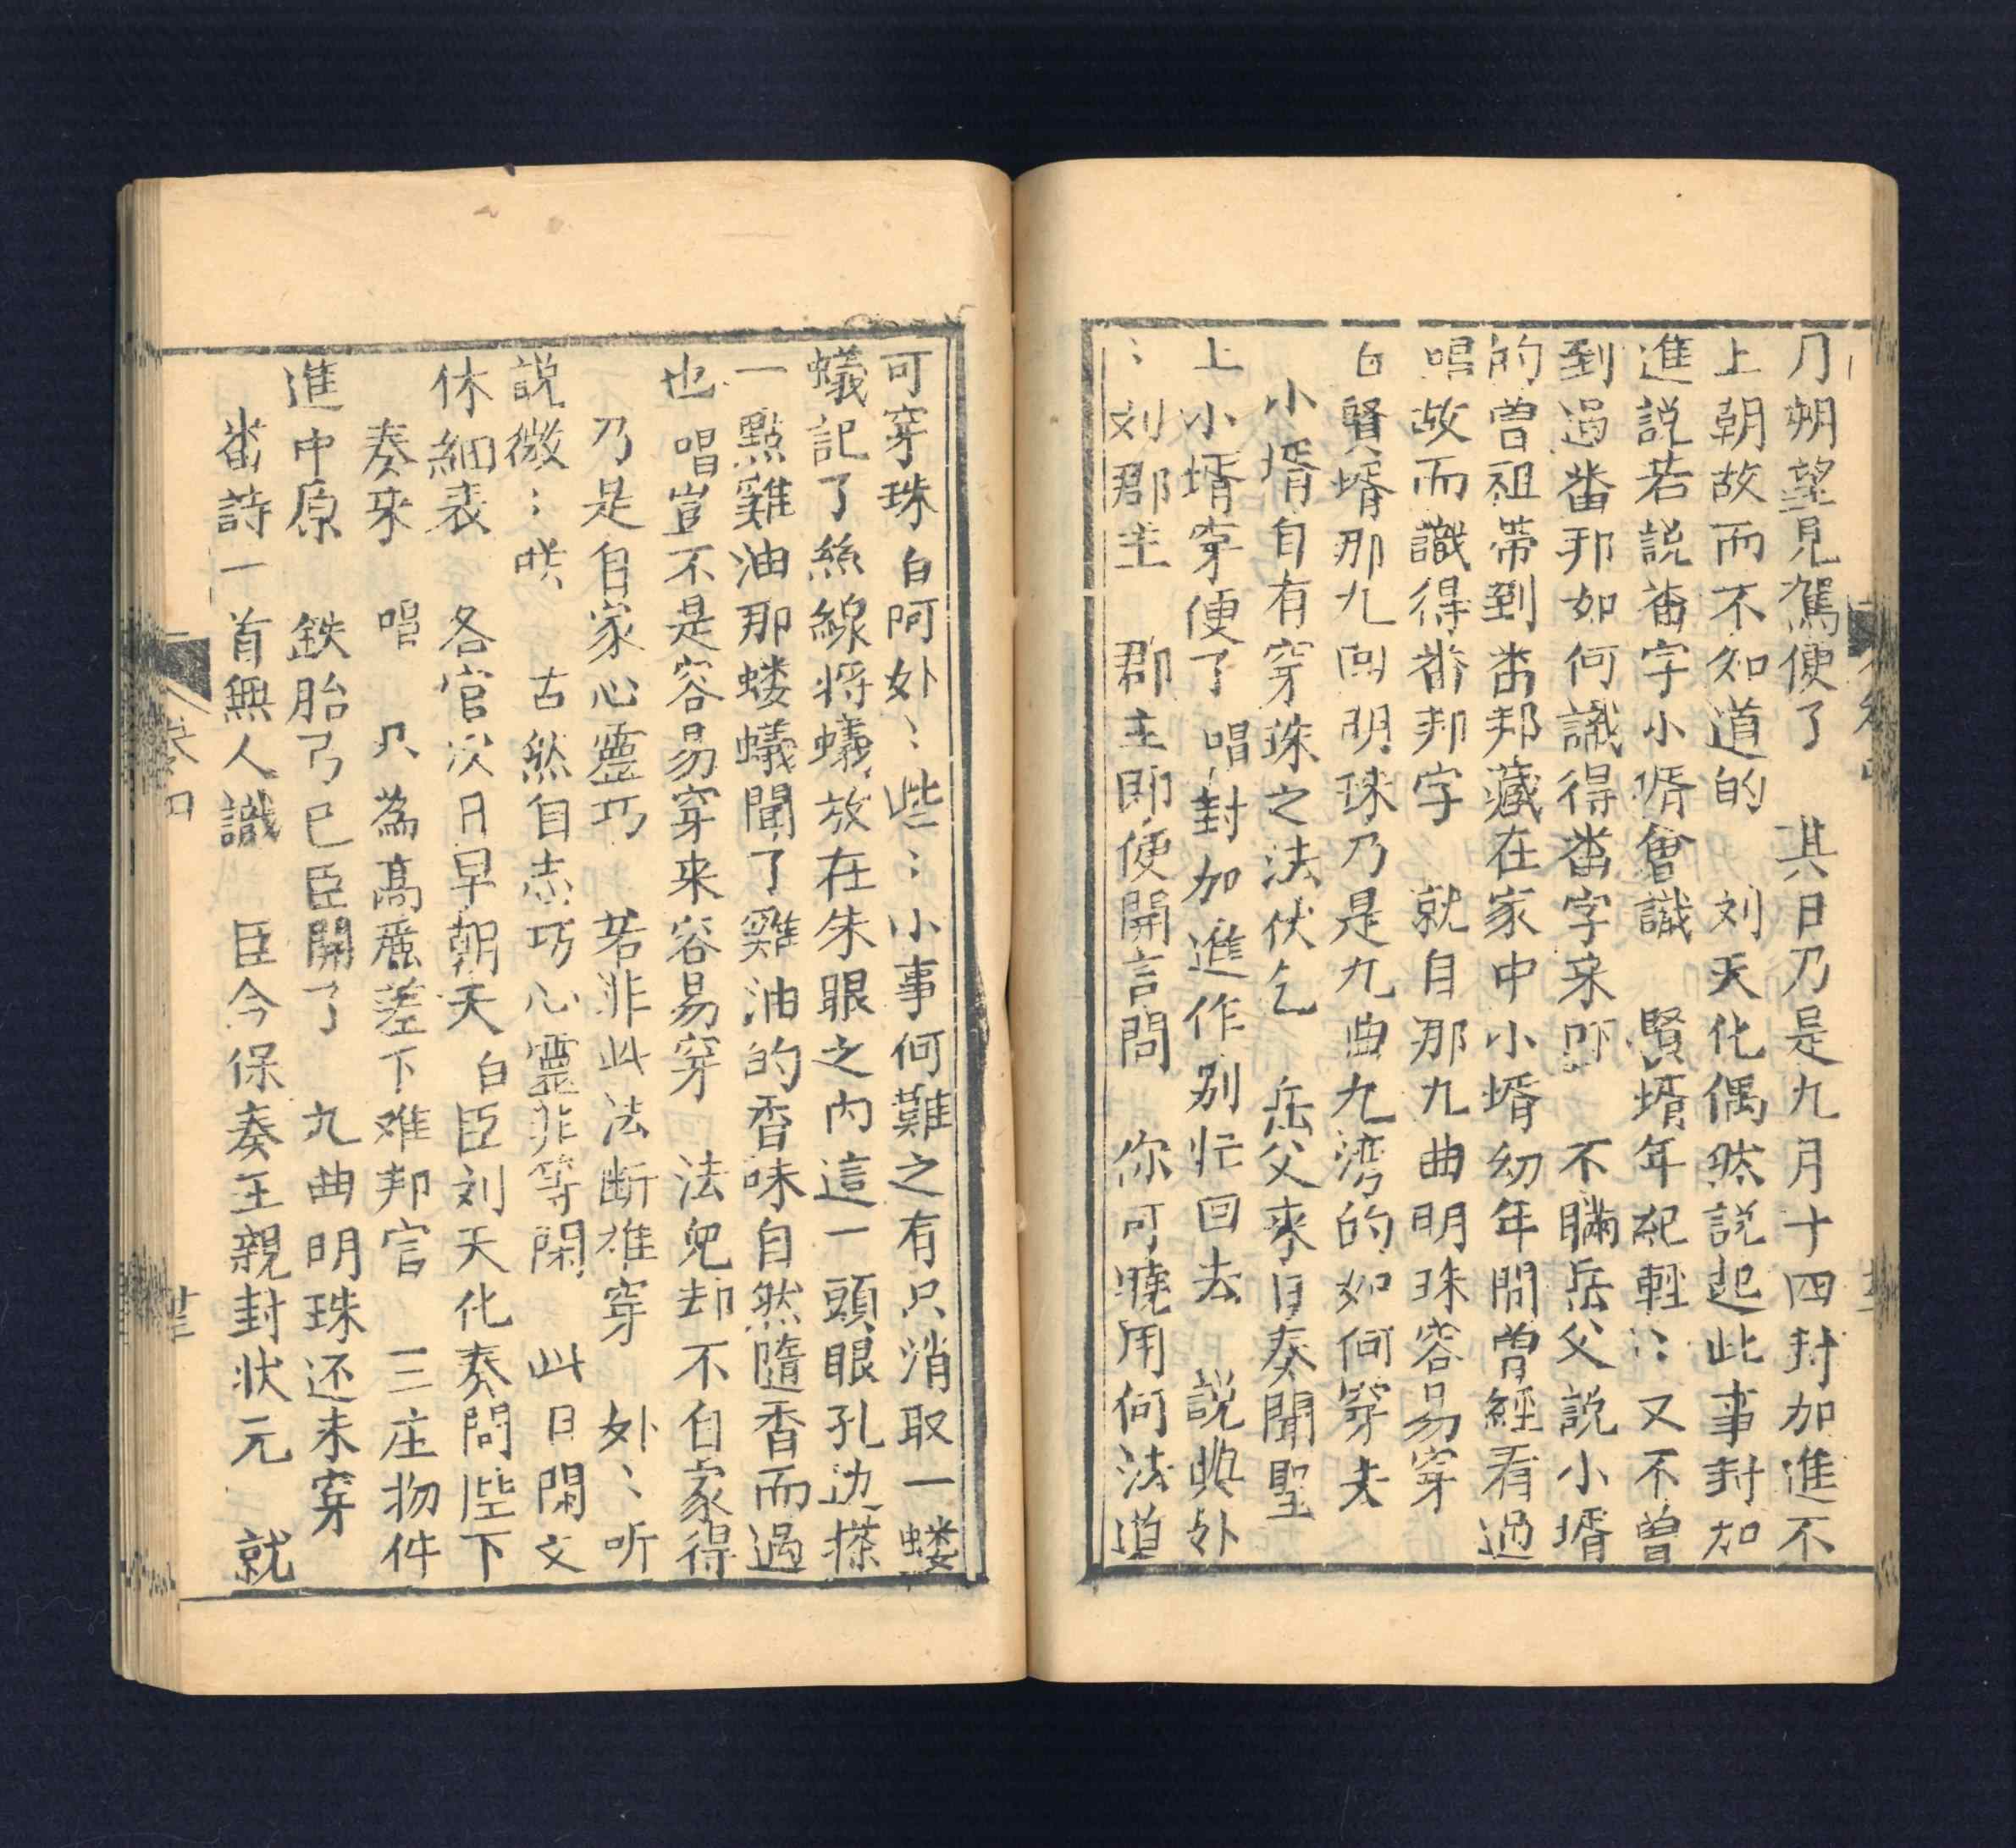 月朔望見駕便了　其日乃是九月十四封加進不
上朝故而不知道的　刘天化偶然説起此事封加
進説若説畨字小壻會識　賢壻年紀輕〻又不曾
到過畨邦如何識得畨字来吓　不瞞岳父説小壻
的曽祖帯到畨邦藏在家中小壻幼年間曽經看過
唱故而識得畨邦字　就自那九曲明珠容易穿
白賢壻那九回明珠乃是九曲九湾的如何穿夫
小壻自有穿珠之法伏乞　岳父来日奏聞聖
上小壻穿便了　唱封加進作别忙回去　説與外
〻刘郡主　郡主即便開言問　你可曉用何法道
可穿珠　白阿外〻些〻小事何難之有只消取一螻
蟻記了絲線将蟻放在朱眼之内這一頭眼孔边搽
一點雞油那螻蟻聞了雞油的香味自然隨香而過
也　唱豈不是容易穿来容易穿　法児却不自家得
乃是自家心靈巧　若非此法断难穿　外〻听
説微〻咲　古然自志巧心靈非等閑　此日閑文
休細表　各官次日早朝天　白臣刘天化奏問陛下
奏来　唱　只為高麗差下难邦官　三庄物件
進中原　鉄胎弓已臣開了　九曲明珠还未穿
畨詩一首無人識　臣今保奏王親封状元　就
卷四